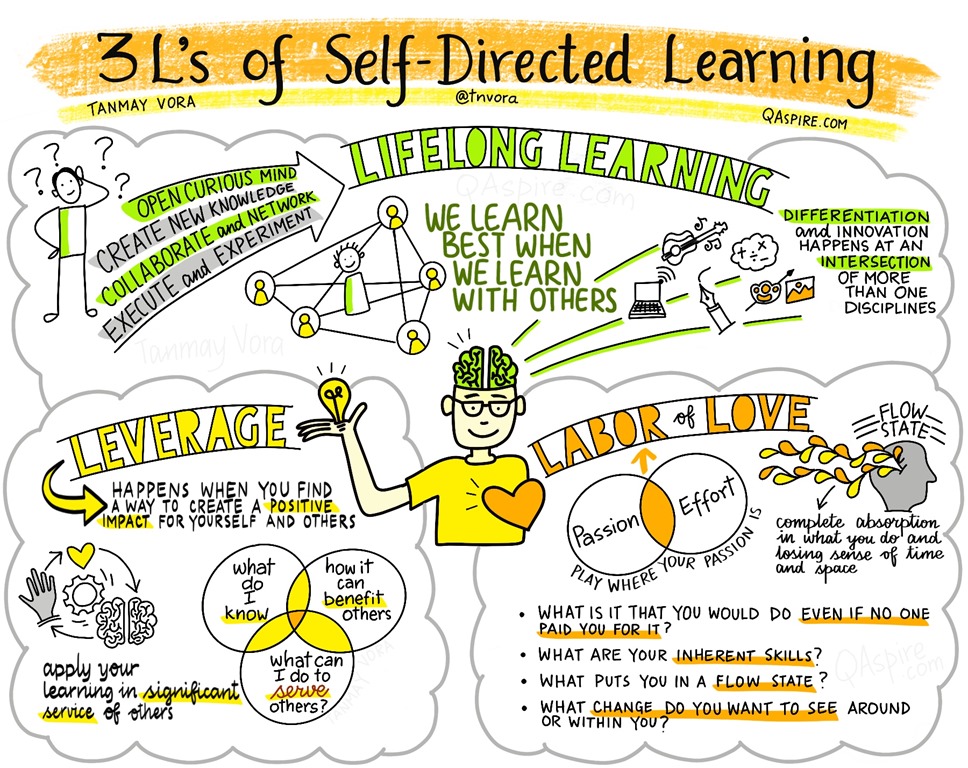 3 L's of Self-Directed Learning
TANMAY VORA
@tnvora
QASPIRE.COM
? ? ? ?
OPEN CURIOUS MIND
CREATE NEW KNOWLEDGE
COLLABORATE and NETWORK
EXECUTE and EXPERIMENT
LIFELONG LEARNING
QAspire.com
WE LEARN
BEST WHEN
WE LEARN
WITH OTHERS
DIFFERENTIATION
and INNOVATION
HAPPENS AT AN
INTERSECTION
OF MORE
THAN ONE
DISCIPLINES
Tanmay Vora
LEVERAGE
HAPPENS WHEN YOU FIND
A WAY TO CREATE A POSITIVE
IMPACT FOR YOURSELF AND OTHERS
what
do
I
know
how it
can
benefit
others
what can
I do to
serve
others?
apply your
learning in significant
service of others
TANMAY VORA
LABOR of LOVE
Passion
Effort
PLAY WHERE YOUR PASSION IS
FLOW
STATE
complete absorption
in what you do and
losing sense of time
and space
• WHAT IS IT THAT YOU WOULD DO EVEN IF NO ONE
PAID YOU FOR IT?
• WHAT ARE YOUR INHERENT SKILLS?
• WHAT PUTS YOU IN A FLOW STATE?
• WHAT CHANGE DO YOU WANT TO SEE AROUND
OR WITHIN YOU?
QAspire
.com